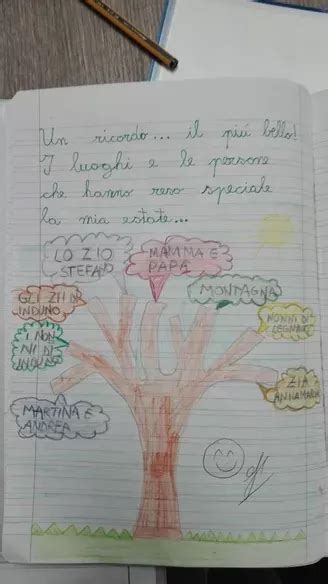 Un ricordo... il più bello!
I luoghi e le persone
che hanno reso speciale
la mia estate...
LO ZIO
STEFANO
MAMMA E
PAPA
MONTAGNA
GLI ZII DI
INDUNO
NONNI DI
LEGNANO
I NON
NI DI
INDUNO
ZIA
ANNAMARIA
MARTINA E
ANDREA